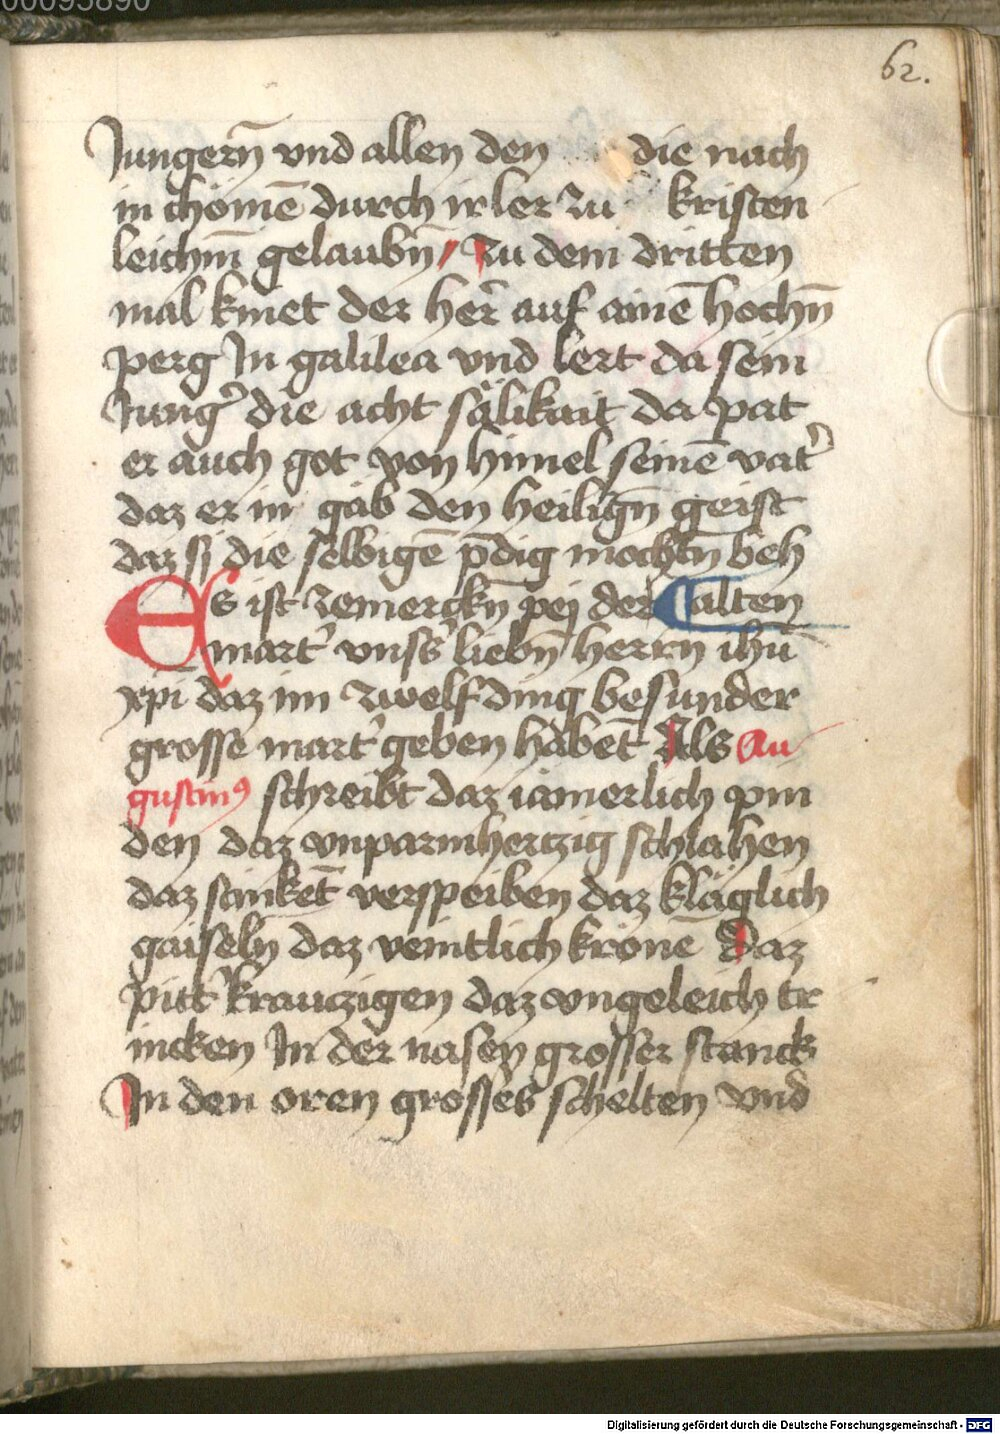 00095890
62.
Jungern̄ vnd allen den die nach
in chömē durch ir ler zu kristen
leichm̄ gelaubn̄ / Zu dem dritten
mal kniet der her̄ auf ainē hochn̄
perg In galilea vnd lert da sein
Jung᷑ die acht sälikait da pat
er auch got von himel seinē vat᷑
daz er in gäb den heilign̄ geist
daz sy die selbigē p̄dig mochtn̄ beh
Es ist zemerckn̄ pej der alten
mart᷑ vnss᷑ liebn̄ herrn ihū
xpi daz im zwelf ding besunder
grosse mart᷑ geben habēt Als Au
gustinꝰ schreibt daz iamerlich pin
den daz vnparmhertzig schlahen
daz stinkēt verspeiben daz kläglich
gaiseln daz veintlich krönē Daz
pitt᷑ krauczigen daz vngeleich tr
incken In der nasen grosser stanck
In den oren grosses schelten vnd
Digitalisierung gefördert durch die Deutsche Forschungsgemeinschaft - DFG